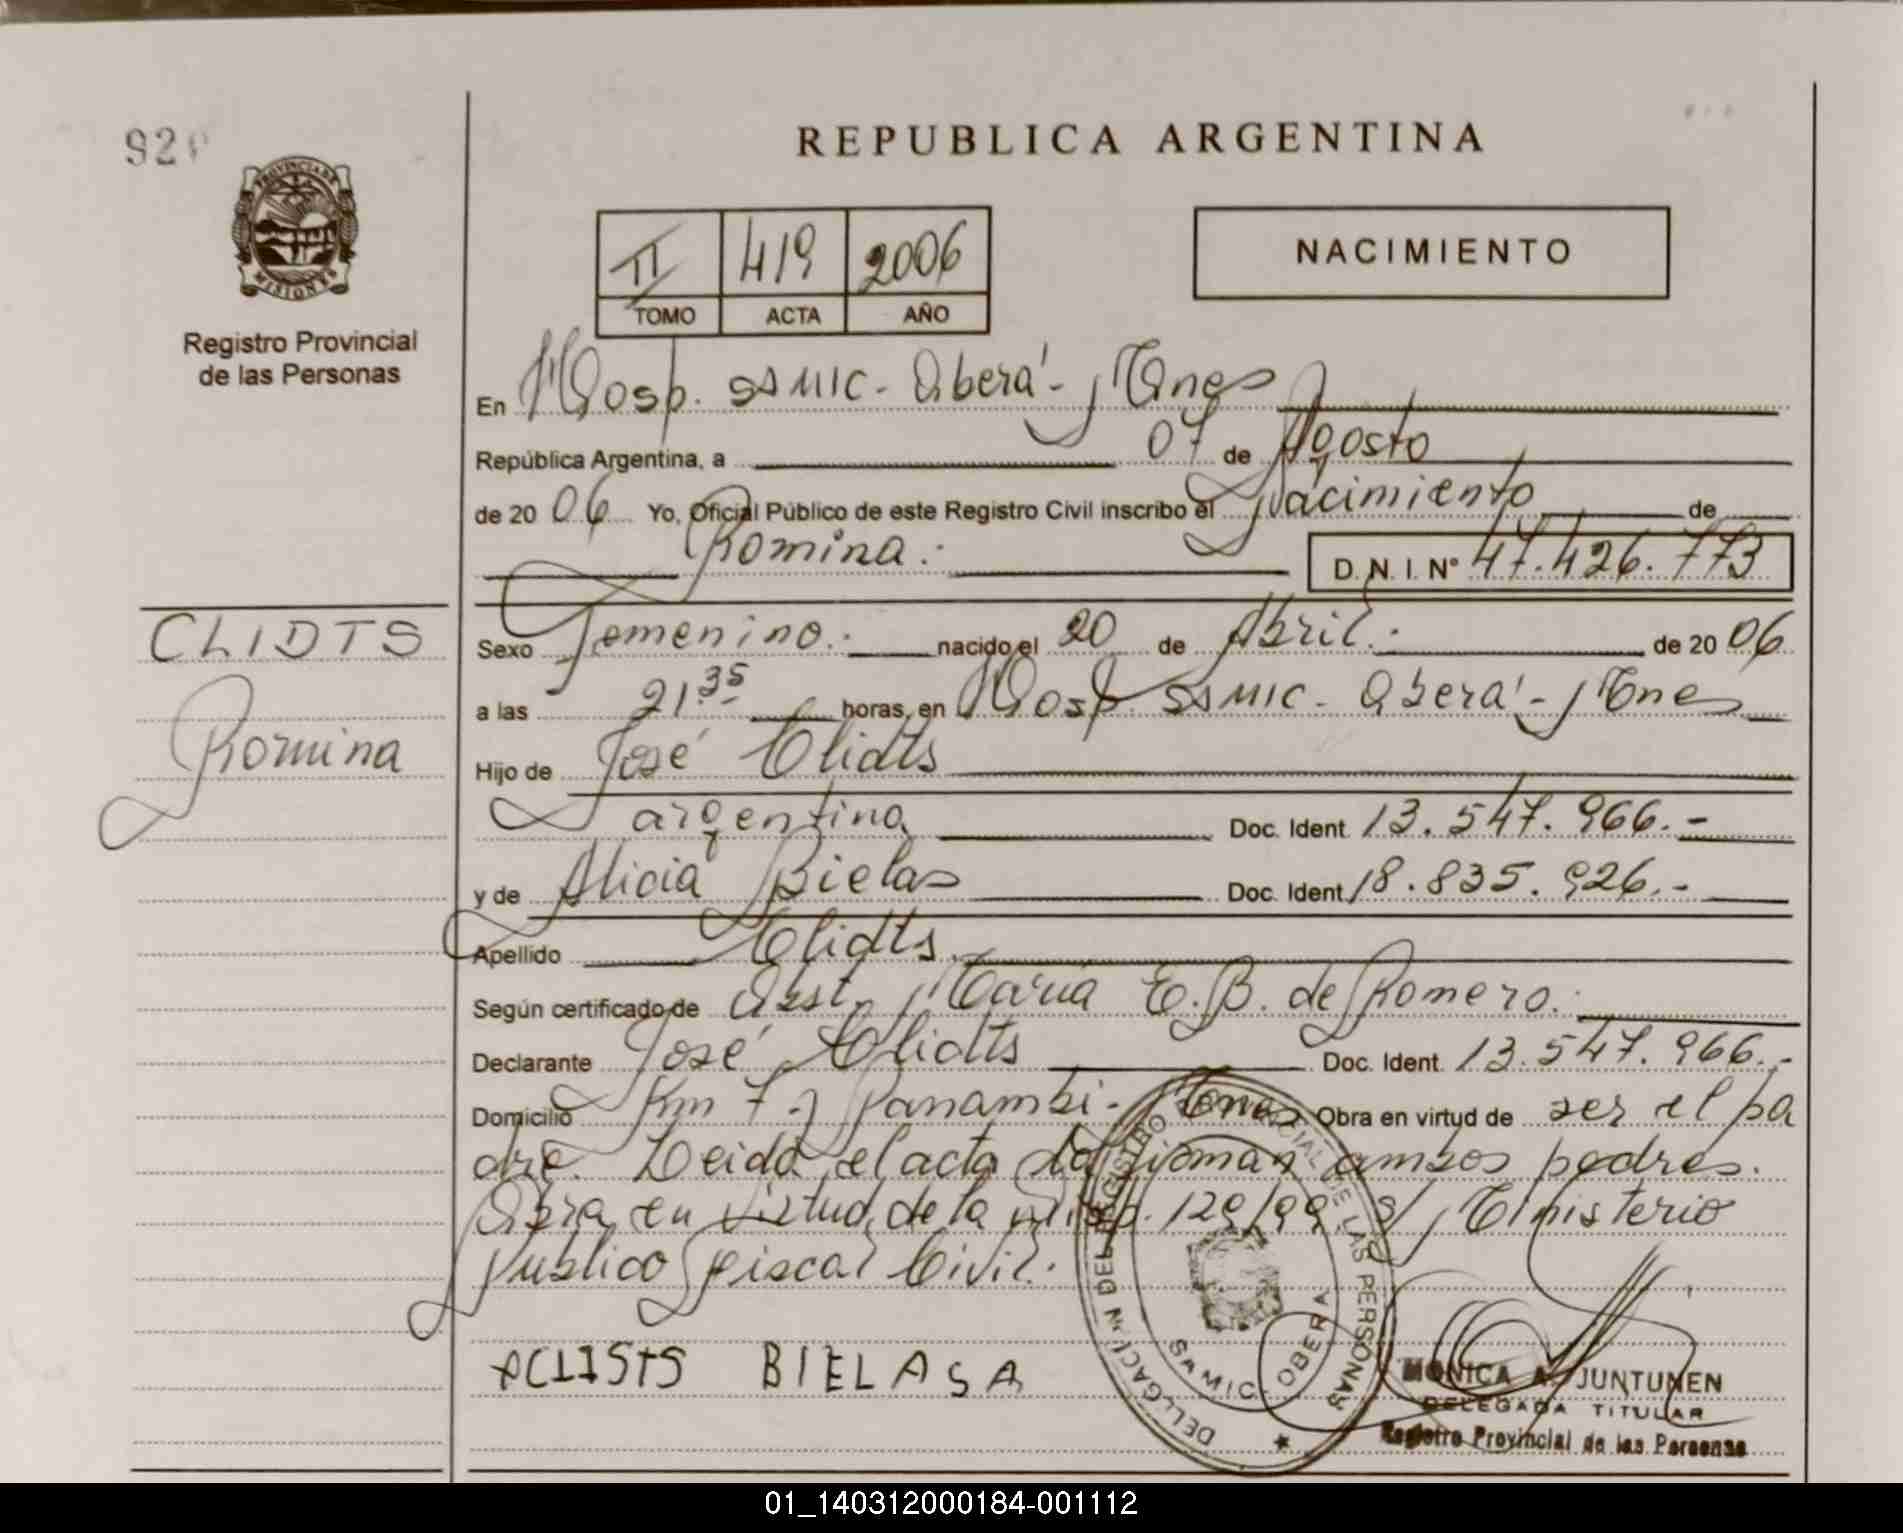 REPUBLICA ARGENTINA
92
PROVINCIA DE
MISIONES
Registro Provincial
de las Personas
II 419 2006
TOMO ACTA AÑO
NACIMIENTO
En Hosp. SAMIC - Oberá - Mnes
República Argentina, a 07 de Agosto
de 2006 Yo, Oficial Público de este Registro Civil inscribo el Nacimiento de
Romina. D.N.I. Nº 47.426.773
CLIDTS
Romina
Sexo Femenino. nacido el 20 de Abril. de 2006
a las 21.35 horas, en Hosp. SAMIC - Oberá - Mnes
Hijo de José Clidts
argentina Doc. Ident. 13.547.966.-
y de Alicia Bielas Doc. Ident. 18.835.926.-
Apellido Clidts.
Según certificado de Obst. María E. B. de Romero.
Declarante José Clidts Doc. Ident. 13.547.966.-
Domicilio Km 7 - Panambi - Mnes Obra en virtud de ser el pa
dre. Leida el acta la firman ambos padres.
Obra en virtud de la Disp. 129/99 s/ Ministerio
Publico Fiscal Civil.
REGISTRO PROVINCIAL DE LAS PERSONAS
SAMIC - OBERA
BIELASA
MONICA A. JUNTUNEN
DELEGADA TITULAR
Registro Provincial de las Personas
01_140312000184-001112